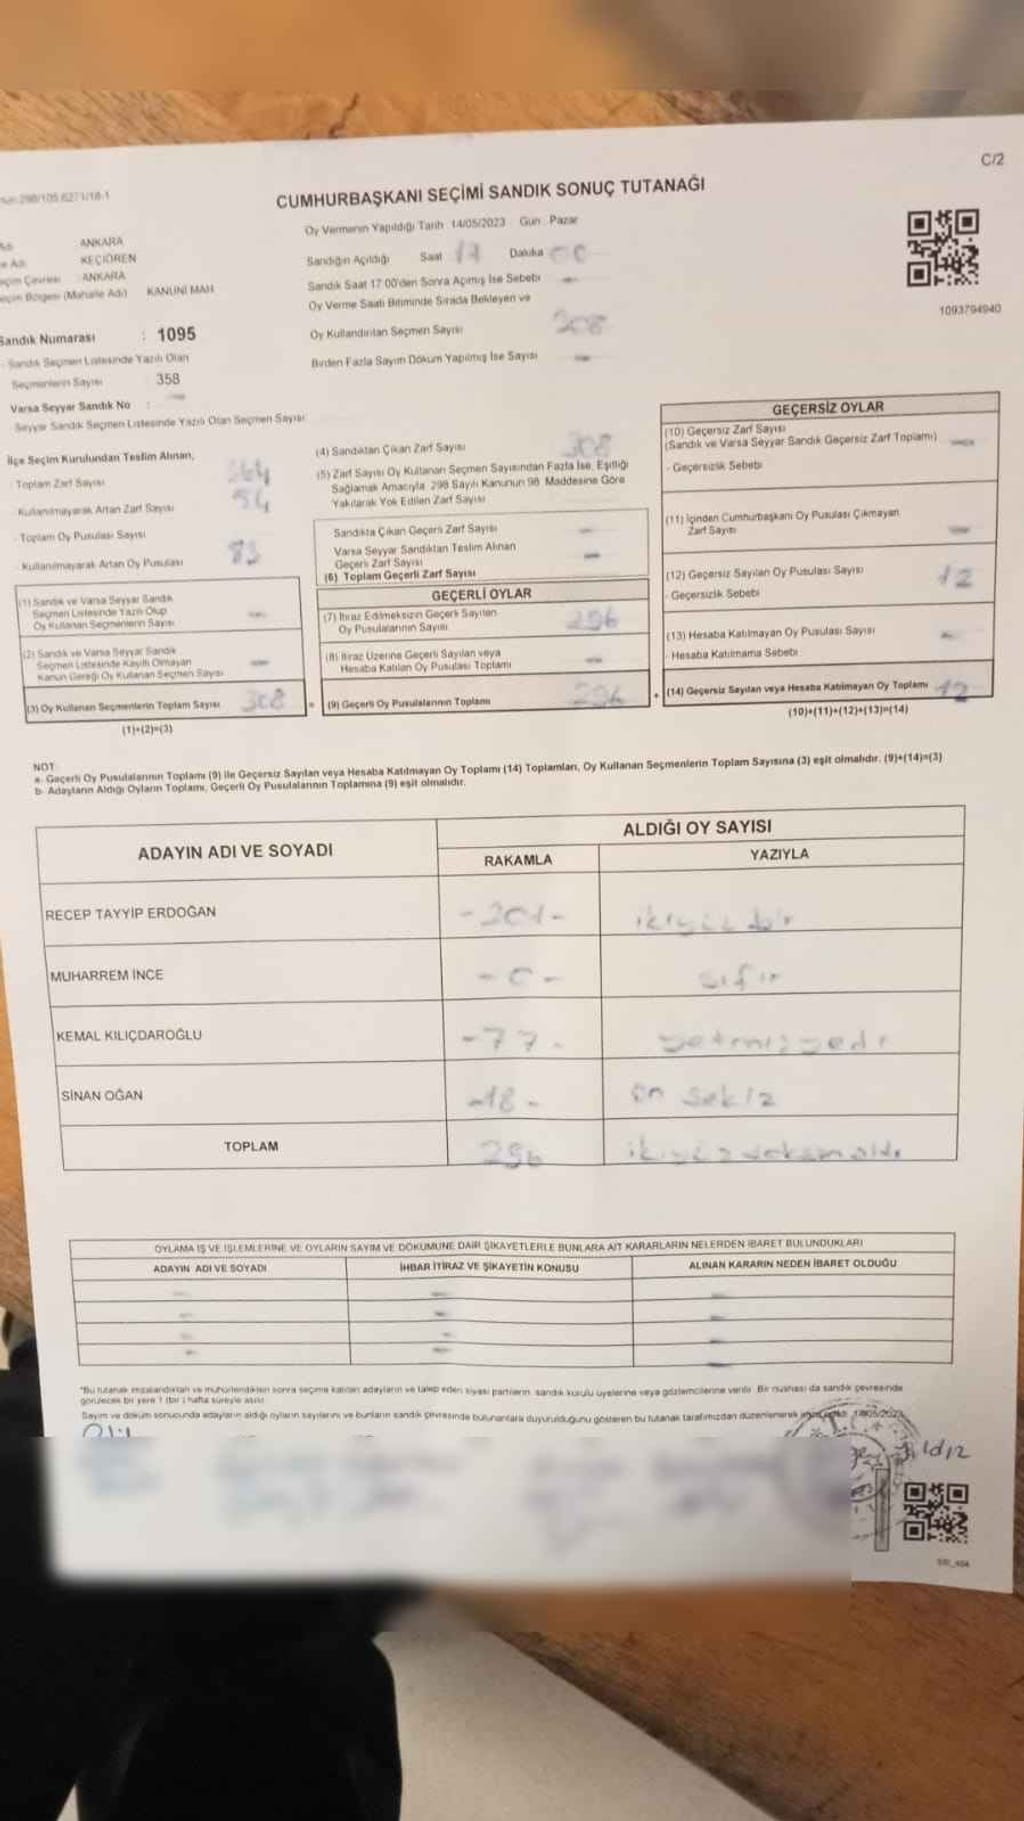 C/2
CUMHURBAŞKANI SEÇİMİ SANDIK SONUÇ TUTANAĞI
Oy Vermenin Yapıldığı Tarih 14/05/2023 Gün Pazar
ANKARA
KEÇİÖREN
ANKARA
(Mahalle Adı) KANUNİ MAH
Sandığın Açıldığı Saat 17 Dakika 00
Sandık Saat 17:00'den Sonra Açılmış İse Sebebi -
Oy Verme Saati Bitiminde Sırada Bekleyen ve
Oy Kullandırılan Seçmen Sayısı 308
Birden Fazla Sayım Döküm Yapılmış İse Sayısı -
1093794940
Sandık Numarası : 1095
Sandık Seçmen Listesinde Yazılı Olan
Seçmenlerin Sayısı : 358
Varsa Seyyar Sandık No : -
Seyyar Sandık Seçmen Listesinde Yazılı Olan Seçmen Sayısı
İlçe Seçim Kurulundan Teslim Alınan,
Toplam Zarf Sayısı 364
Kullanılmayarak Artan Zarf Sayısı 54
Toplam Oy Pusulası Sayısı
Kullanılmayarak Artan Oy Pusulası 83
(1) Sandık ve Varsa Seyyar Sandık
Seçmen Listesinde Yazılı Olup
Oy Kullanan Seçmenlerin Sayısı -
(2) Sandık ve Varsa Seyyar Sandık
Seçmen Listesinde Kayıtlı Olmayan
Kanun Gereği Oy Kullanan Seçmen Sayısı -
(3) Oy Kullanan Seçmenlerin Toplam Sayısı 308
(1)+(2)=(3)
(4) Sandıktan Çıkan Zarf Sayısı 308
(5) Zarf Sayısı Oy Kullanan Seçmen Sayısından Fazla İse, Eşitliği
Sağlamak Amacıyla 298 Sayılı Kanunun 98. Maddesine Göre
Yakılarak Yok Edilen Zarf Sayısı
Sandıkta Çıkan Geçerli Zarf Sayısı -
Varsa Seyyar Sandıktan Teslim Alınan
Geçerli Zarf Sayısı -
(6) Toplam Geçerli Zarf Sayısı
GEÇERLİ OYLAR
(7) İtiraz Edilmeksizin Geçerli Sayılan
Oy Pusulalarının Sayısı 296
(8) İtiraz Üzerine Geçerli Sayılan veya
Hesaba Katılan Oy Pusulası Toplamı -
= (9) Geçerli Oy Pusulalarının Toplamı 296
GEÇERSİZ OYLAR
(10) Geçersiz Zarf Sayısı
(Sandık ve Varsa Seyyar Sandık Geçersiz Zarf Toplamı) -
- Geçersizlik Sebebi
(11) İçinden Cumhurbaşkanı Oy Pusulası Çıkmayan
Zarf Sayısı -
(12) Geçersiz Sayılan Oy Pusulası Sayısı 12
- Geçersizlik Sebebi
(13) Hesaba Katılmayan Oy Pusulası Sayısı -
- Hesaba Katılmama Sebebi
+ (14) Geçersiz Sayılan veya Hesaba Katılmayan Oy Toplamı 12
(10)+(11)+(12)+(13)=(14)
NOT:
a- Geçerli Oy Pusulalarının Toplamı (9) ile Geçersiz Sayılan veya Hesaba Katılmayan Oy Toplamı (14) Toplamları, Oy Kullanan Seçmenlerin Toplam Sayısına (3) eşit olmalıdır. (9)+(14)=(3)
b- Adayların Aldığı Oyların Toplamı, Geçerli Oy Pusulalarının Toplamına (9) eşit olmalıdır.
ADAYIN ADI VE SOYADI
ALDIĞI OY SAYISI
RAKAMLA YAZIYLA
RECEP TAYYİP ERDOĞAN -201- ikiyüz bir
MUHARREM İNCE -0- sıfır
KEMAL KILIÇDAROĞLU -77- yetmişyedi
SİNAN OĞAN -18- on sekiz
TOPLAM 296 ikiyüz doksanaltı
OYLAMA İŞ VE İŞLEMLERİNE VE OYLARIN SAYIM VE DÖKÜMÜNE DAİR ŞİKAYETLERLE BUNLARA AİT KARARLARIN NELERDEN İBARET BULUNDUKLARI
ADAYIN ADI VE SOYADI İHBAR İTİRAZ VE ŞİKAYETİN KONUSU ALINAN KARARIN NEDEN İBARET OLDUĞU
- - -
- - -
- - -
- - -
"Bu tutanak imzalandıktan ve mühürlendikten sonra seçime katılan adayların ve talep eden siyasi partilerin, sandık kurulu üyelerine veya gözlemcilerine verilir. Bir nushası da sandık çevresinde
görülecek bir yere 1 (bir) hafta süreyle asılır.
Sayım ve döküm sonucunda adayların aldığı oyların sayılarını ve bunların sandık çevresinde bulunanlara duyurulduğunu gösteren bu tutanak tarafımızdan düzenlenerek 14/05/2023